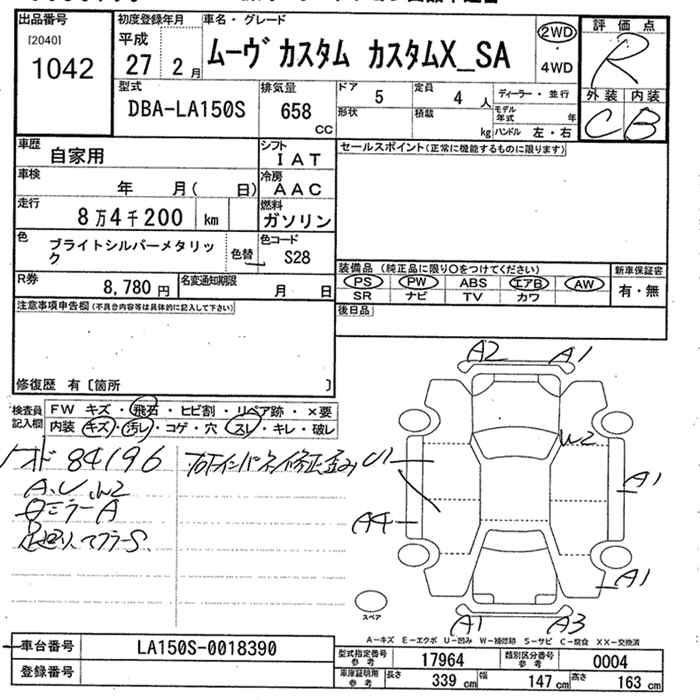 出品番号 初度登録年月 車名・グレード 評価点
[2040] 平成 ムーヴカスタム カスタムX_SA 2WD R
1042 27 2月 4WD
型式 排気量 ドア 5 定員 4人 ディーラー・並行 外装 内装
DBA-LA150S 658 cc 形状 積載 kg モデル年式 年 C B
ハンドル 左・右
車歴 自家用 シフト IAT セールスポイント(正常に機能するものに限ります)
車検 年 月( 日) 冷房 AAC
走行 8万4千200 km 燃料 ガソリン
色 ブライトシルバーメタリック 色替 色コード S28
R券 8,780円 名変通知期限 月 日
装備品 (純正品に限り〇をつけてください) 新車保証書
PS PW ABS エアB AW 有・無
SR ナビ TV カワ
注意事項申告欄(不具合内容等は具体的に記入して下さい) 後日品
修復歴 有〔箇所 〕
検査員記入欄 FW キズ・飛石・ヒビ割・リペア跡・×要
内装 キズ・汚レ・コゲ・穴・スレ・キレ・破レ
84196
A.U.W2
ミラーA
マフラーS.
A2 A1
U1 W2
A1
A4
A1
スペア
A1 A3
A-キズ E-エクボ U-凹み W-補修跡 S-サビ C-腐食 XX-交換済
車台番号 LA150S-0018390
登録番号
型式指定番号 参考 17964 類別区分番号 参考 0004
車庫証明用 参考 長さ 339 cm 幅 147 cm 高さ 163 cm